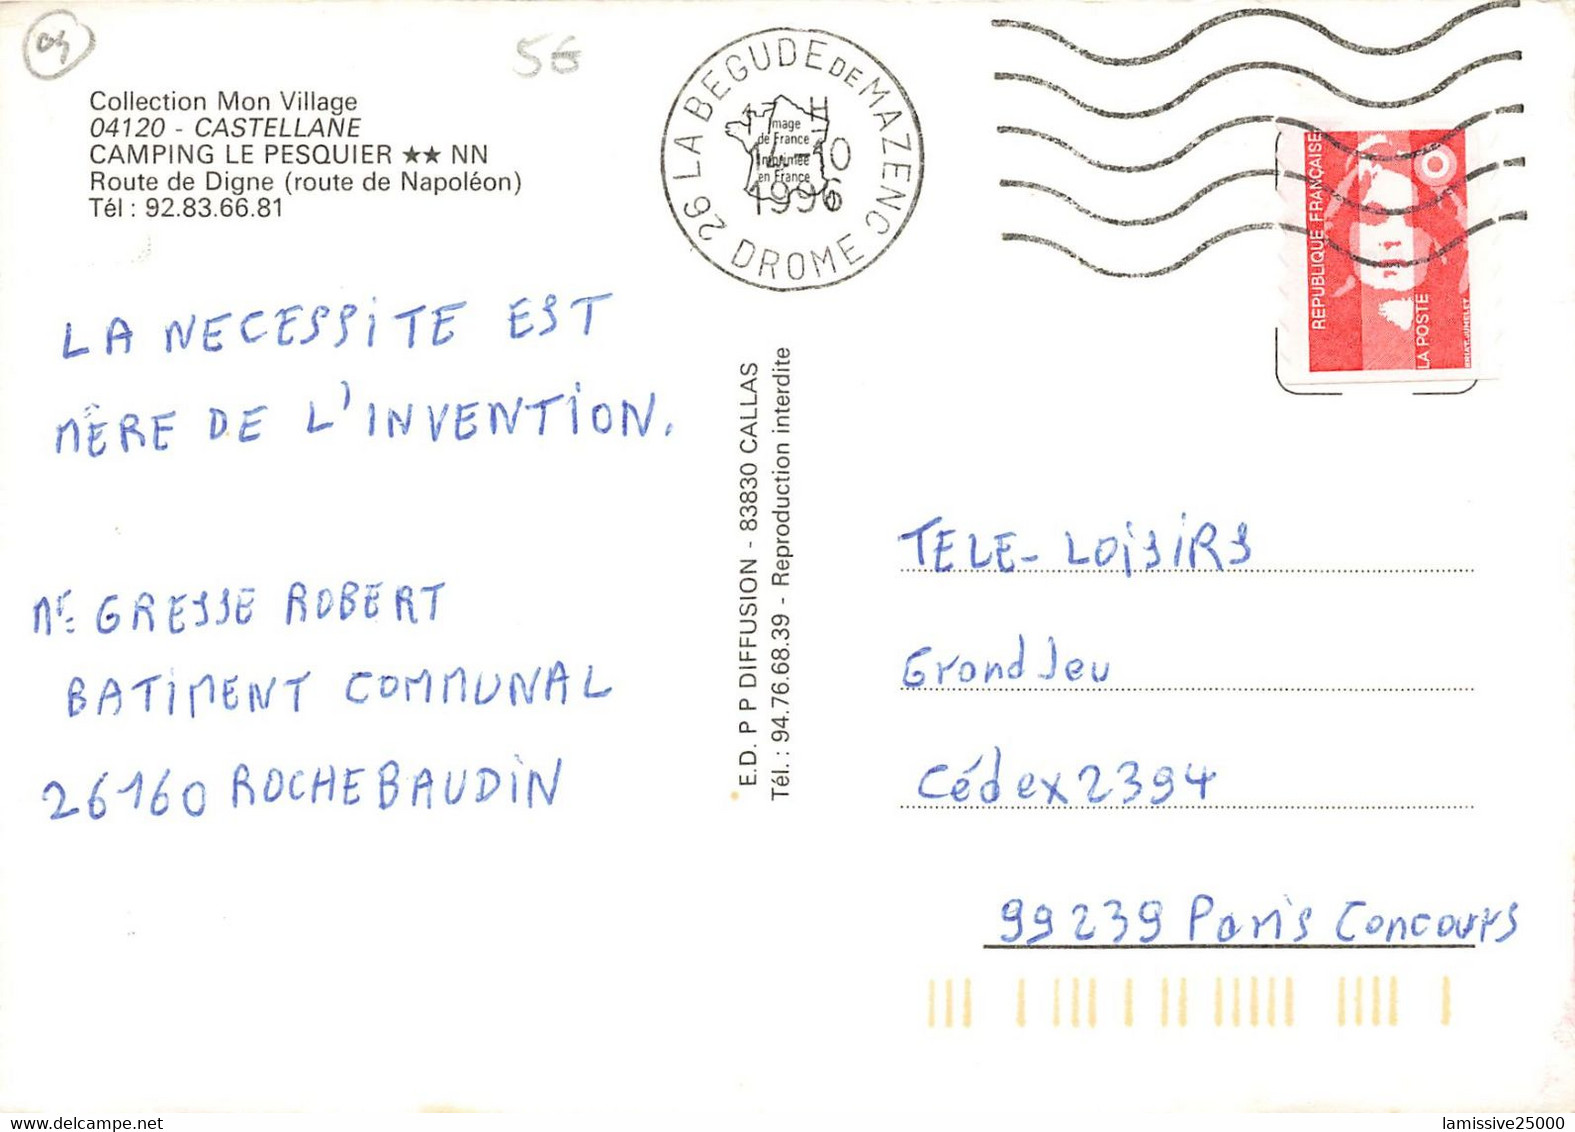 04
56
Collection Mon Village
04120 - CASTELLANE
CAMPING LE PESQUIER ★★ NN
Route de Digne (route de Napoléon)
Tél : 92.83.66.81
26 LA BEGUDE DE MAZENC
DROME
Image
de France
Imprimée
en France
-10
1996
REPUBLIQUE FRANÇAISE
LA POSTE
BRIAT-JUMELET
LA NECESSITE EST
MÈRE DE L'INVENTION.
Mr GRESSE ROBERT
BATIMENT COMMUNAL
26160 ROCHEBAUDIN
E.D. P P DIFFUSION - 83830 CALLAS
Tél. : 94.76.68.39 - Reproduction interdite
TELE-LOISIRS
Grand Jeu
Cédex 2394
99239 Paris Concours
lamissive25000